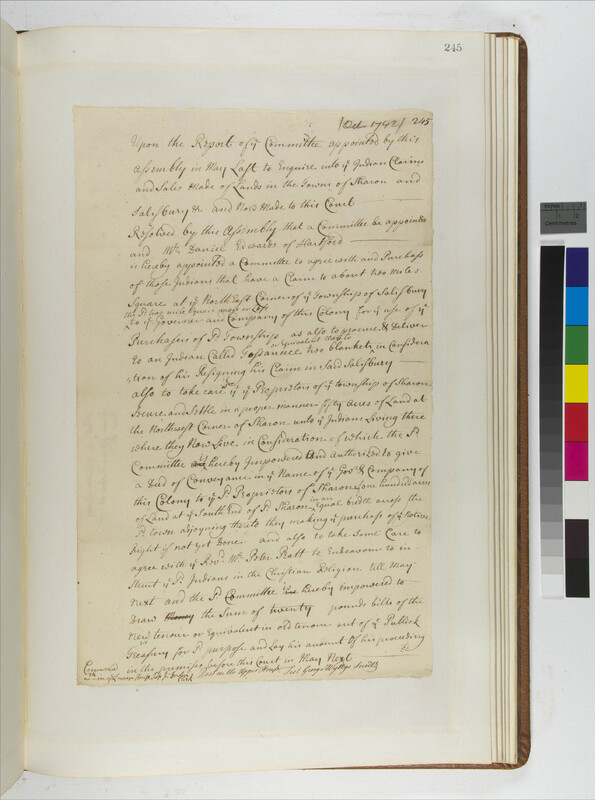 245
[Oct 1742] 245
Upon the Report of ye Committe appointed by this
Assembly in May Last to Enquire into ye Indian Claims
and Sales Made of Lands in the Towns of Sharon and
Salisbury &c. and Now Made to this Court
Resolved by this Assembly that a Committee be appointed
and Mr. Daniel Edwards of Hartford
is hereby appointed a Committee to agree with and Purchass
of those Indians that have a Claim to about two Miles
Square at ye Northeast Corner of ye Township of Salisbury
the sd two mile Square
to ye Governor and Company of this Colony for ye use of ye
Purchasers of sd Township as also to procure & deliver
or Equivalent
to an Indian Called two blankets in Considera
tion of his Resigning his Claim in Said Salisbury
also to take care yt ye Proprietors of ye township of Sharon
Secure and Settle in a proper manner fifty acres of Land at
the Northwest Corner of Sharon unto ye Indians Living there
where they Now Live in Consideration of which the sd
Committee hereby Impowered and authorized to give
a Deed of Conveyance in ye Name of ye Govr & Company of
this Colony to ye sd Proprietors of Sharon one hundred acres
of Land at ye South End of sd Sharon in an Equal bredth across the
sd town adjoyning thereto they making ye purchass of ye Native
Right if not yet Done and also to take Some Care to
agree with ye Revd. Mr. Peter Pratt to Endeavour to in-
struct ye sd Indians in the Christian Religion till May
Next and the sd Committee hereby empowered to
Draw the Sum of twenty pounds bills of the
New tenour or Equivalent in old tenour out of ye Publick
Treasury for sd purpose and Lay his amount of his proceeding
in the premises before this Court in May Next
&c
Concurred with in ye Lower House Clerk
Past in the Upper House
Test George Wyllys Secretr